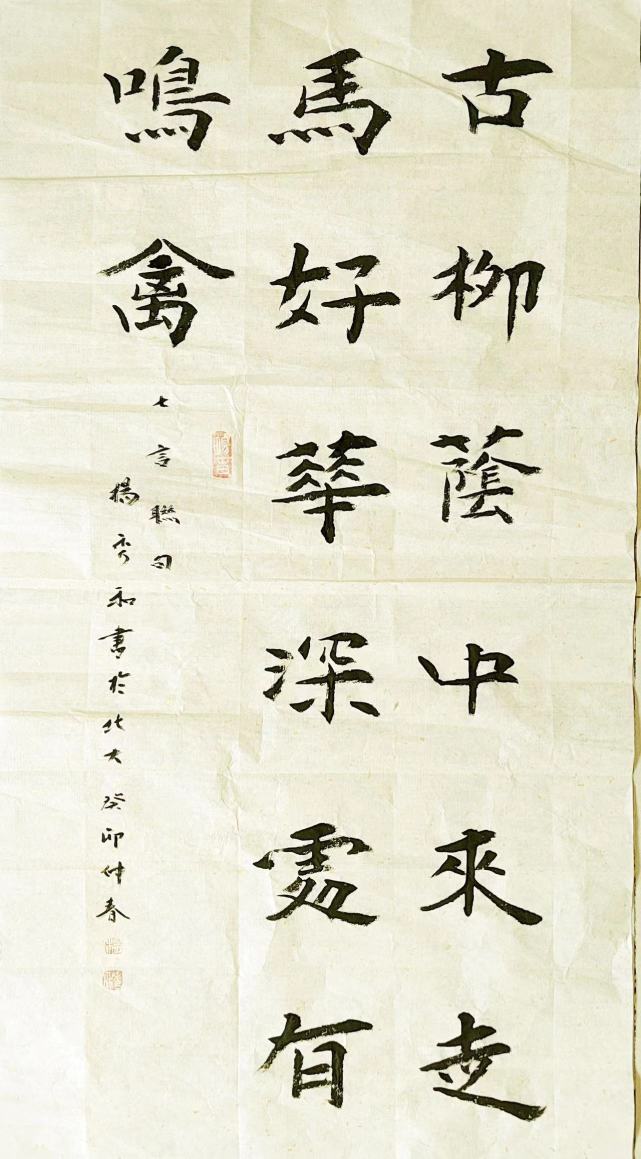 古柳蔭中來走
馬好華深處有
鳴禽
七言聯句
楊秀和書於北大癸卯仲春